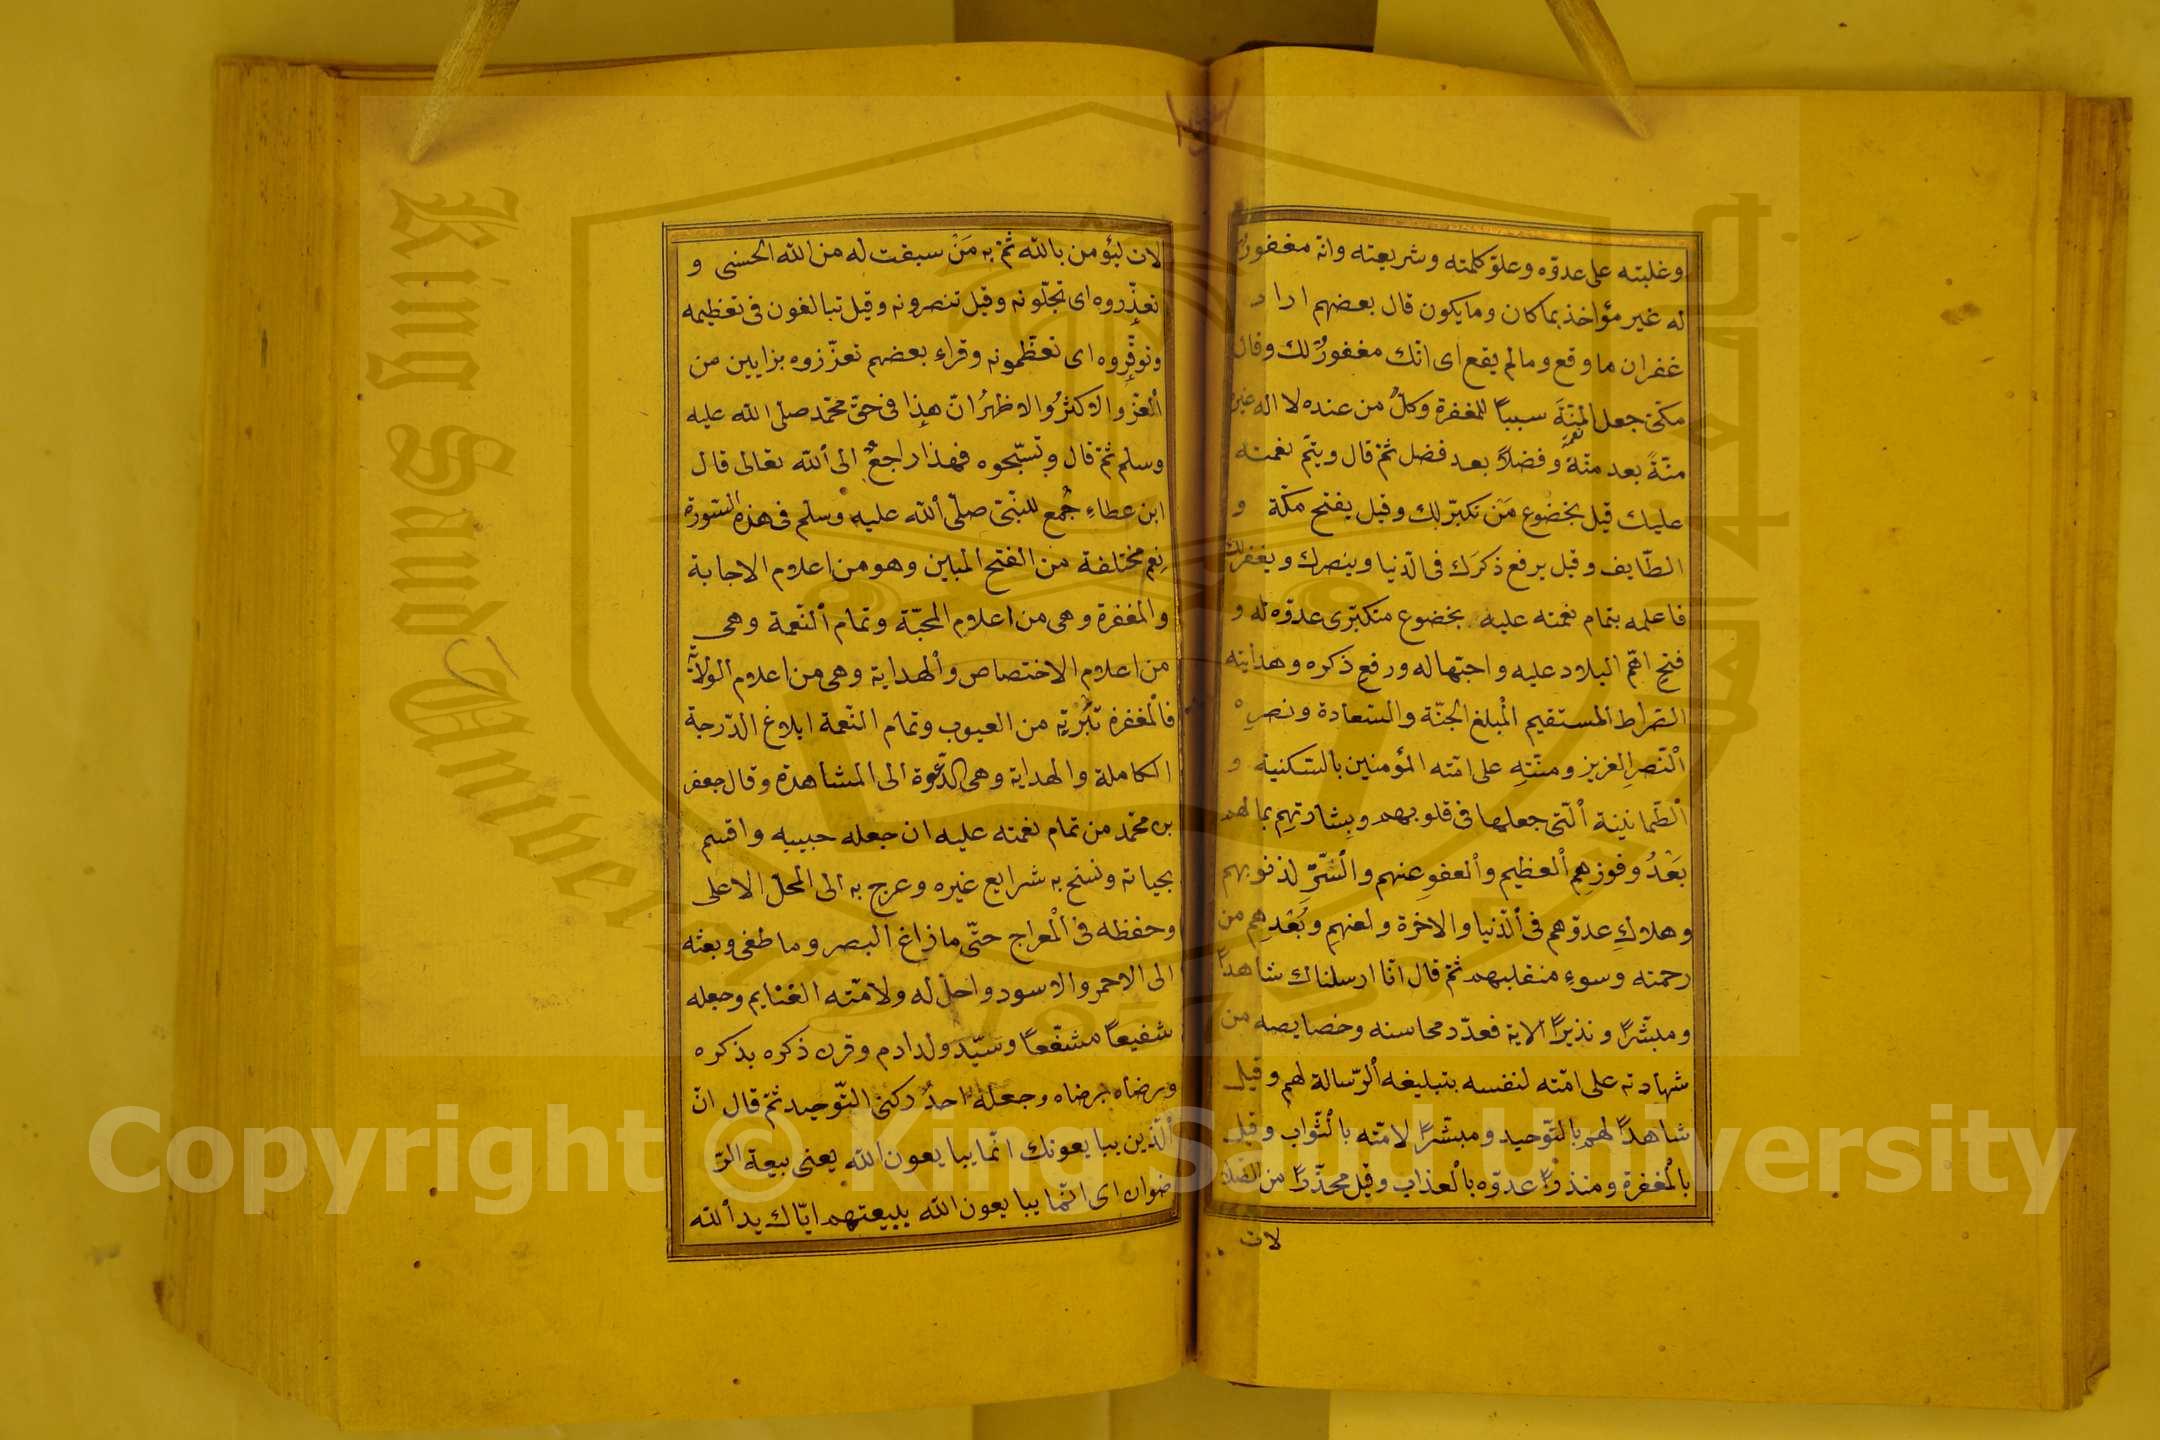 وغلبته على عدوّه وعلوّ كلمته وشريعته وانّه مغفورٌ
له غير مؤاخذ بما كان وما يكون قال بعضهم اراد
غفران ما وقع وما لم يقع اى انّك مغفورٌ لك وقال
مكّىّ جعل المِنّةَ سبباً للمغفرة وكلٌّ من عنده لا اله غيره
منّةً بعد منّةٍ وفضلاً بعد فضل ثمّ قال ويتمّ نعمته
عليك قيل بخضوع مَنْ تكبّر لك وقيل بفتح مكّة و
الطّايف وقيل يرفع ذكرَك فى الدّنيا وينصرك ويغفر لك
فاعلمه بتمام نعمته عليه بخضوع متكبّرى عدوّه له و
فتح اهمّ البلاد عليه واحبّها له ورفع ذكره وهدايته
الصّراط المستقيم المبلغ الجنّة والسّعادة ونصرِهْ
النّصرالعزيز ومنّته على امّته المؤمنين بالسّكنية و
الطّمانينة الّتى جعلها فى قلوبهم وبِشارتهِم بما لهم
بَعْدُ وفوزهِم العظيم والعفوِ عنهم والسّترِ لذنوبهم
وهلاكِ عدوّهم فى الدّنيا والاخرة ولعنهِم وبُعْدِهم من
رحمته وسوءِ منقلبهم ثمّ قال انّا ارسلناك شاهداً
ومبشّراً ونذيراً الاية فعدّد محاسنه وخصايصه من
شهادته على امّته لنفسه بتبليغه الرّسالة لهم وقيل
شاهداً لهم بالتّوحيد ومبشّراً لامّته بالثّواب وقيل
بالمغفرة ومنذراً عدوّه بالعذاب وقيل محذّراً من الضلا
لات
لات ليؤمن بالله ثمّ به مَنْ سبقت له من الله الحسنى و
تعزّروه اى تجلّونه وقيل تنصرونه وقيل تبالغون فى تعظيمه
وتوقّروه اى تعظّمونه وقراء بعضهم تعزّزوه بزايين من
العزّ والاكثرُ والاظهرُ انّ هذا فى حقّ محمّد صلّى الله عليه
وسلم ثمّ قال وتسّبّحوه فهذا راجعٌ الى الله تعالى قال
ابن عطاءِ جُمع للنّبىّ صلّى الله عليه وسلّم فى هذه السّورة
نِعم مختلفة من الفتح المبين وهو من اعلام الاجابة
والمغفرة وهى من اعلام المحبّة وتمام النّعمة وهى
من اعلام الاختصاص والهداية وهى من اعلام الولاية
فالمغفرة تبْرِيَة من العيوب وتمام النّعمة ابلاغ الدّرجة
الكاملة والهداية وهى الدّعوة الى المشاهدة وقال جعفر
بن محمّد من تمام نعمته عليه ان جعله حبيبه واقسم
بحياته ونسخ به شرايع غيره وعرج به الى المحلّ الاعلى
وحفظه فى المعراج حتّى ما زاغ البصر وما طغى وبعثه
الى الاحمر والاسود واحلّ له ولامّته الغنايم وجعله
شفيعاً مشفّعاً وسيّد ولد ادم وقرن ذكره بذكره
ورضاه برضاه وجعله احدُ ركنى التّوحيد ثمّ قال انّ
الّذين يبايعونك انّما يبايعون الله يعنى بيعة الرّ
ضوان اى انّما يبايعون الله ببيعتهم ايّاك يد الله
King Saud University
1957
Copyright © King Saud University